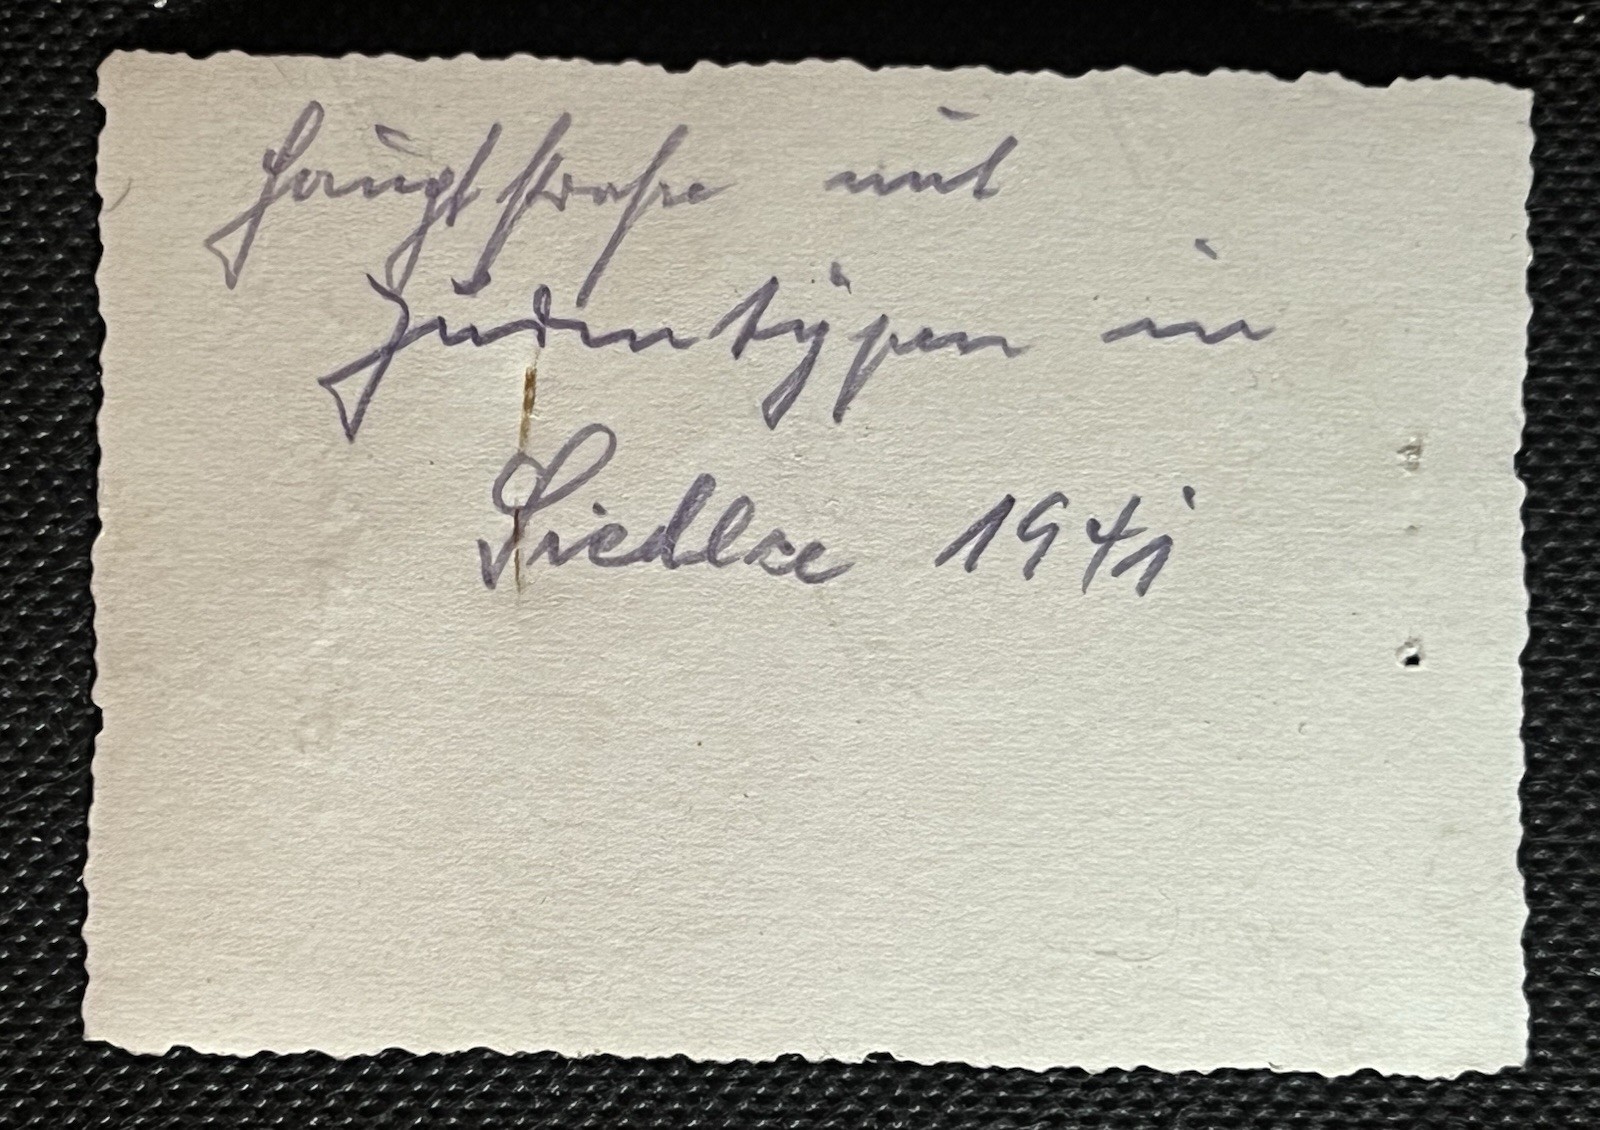 Hauptstraße mit
Judentypen in
Siedlce 1941